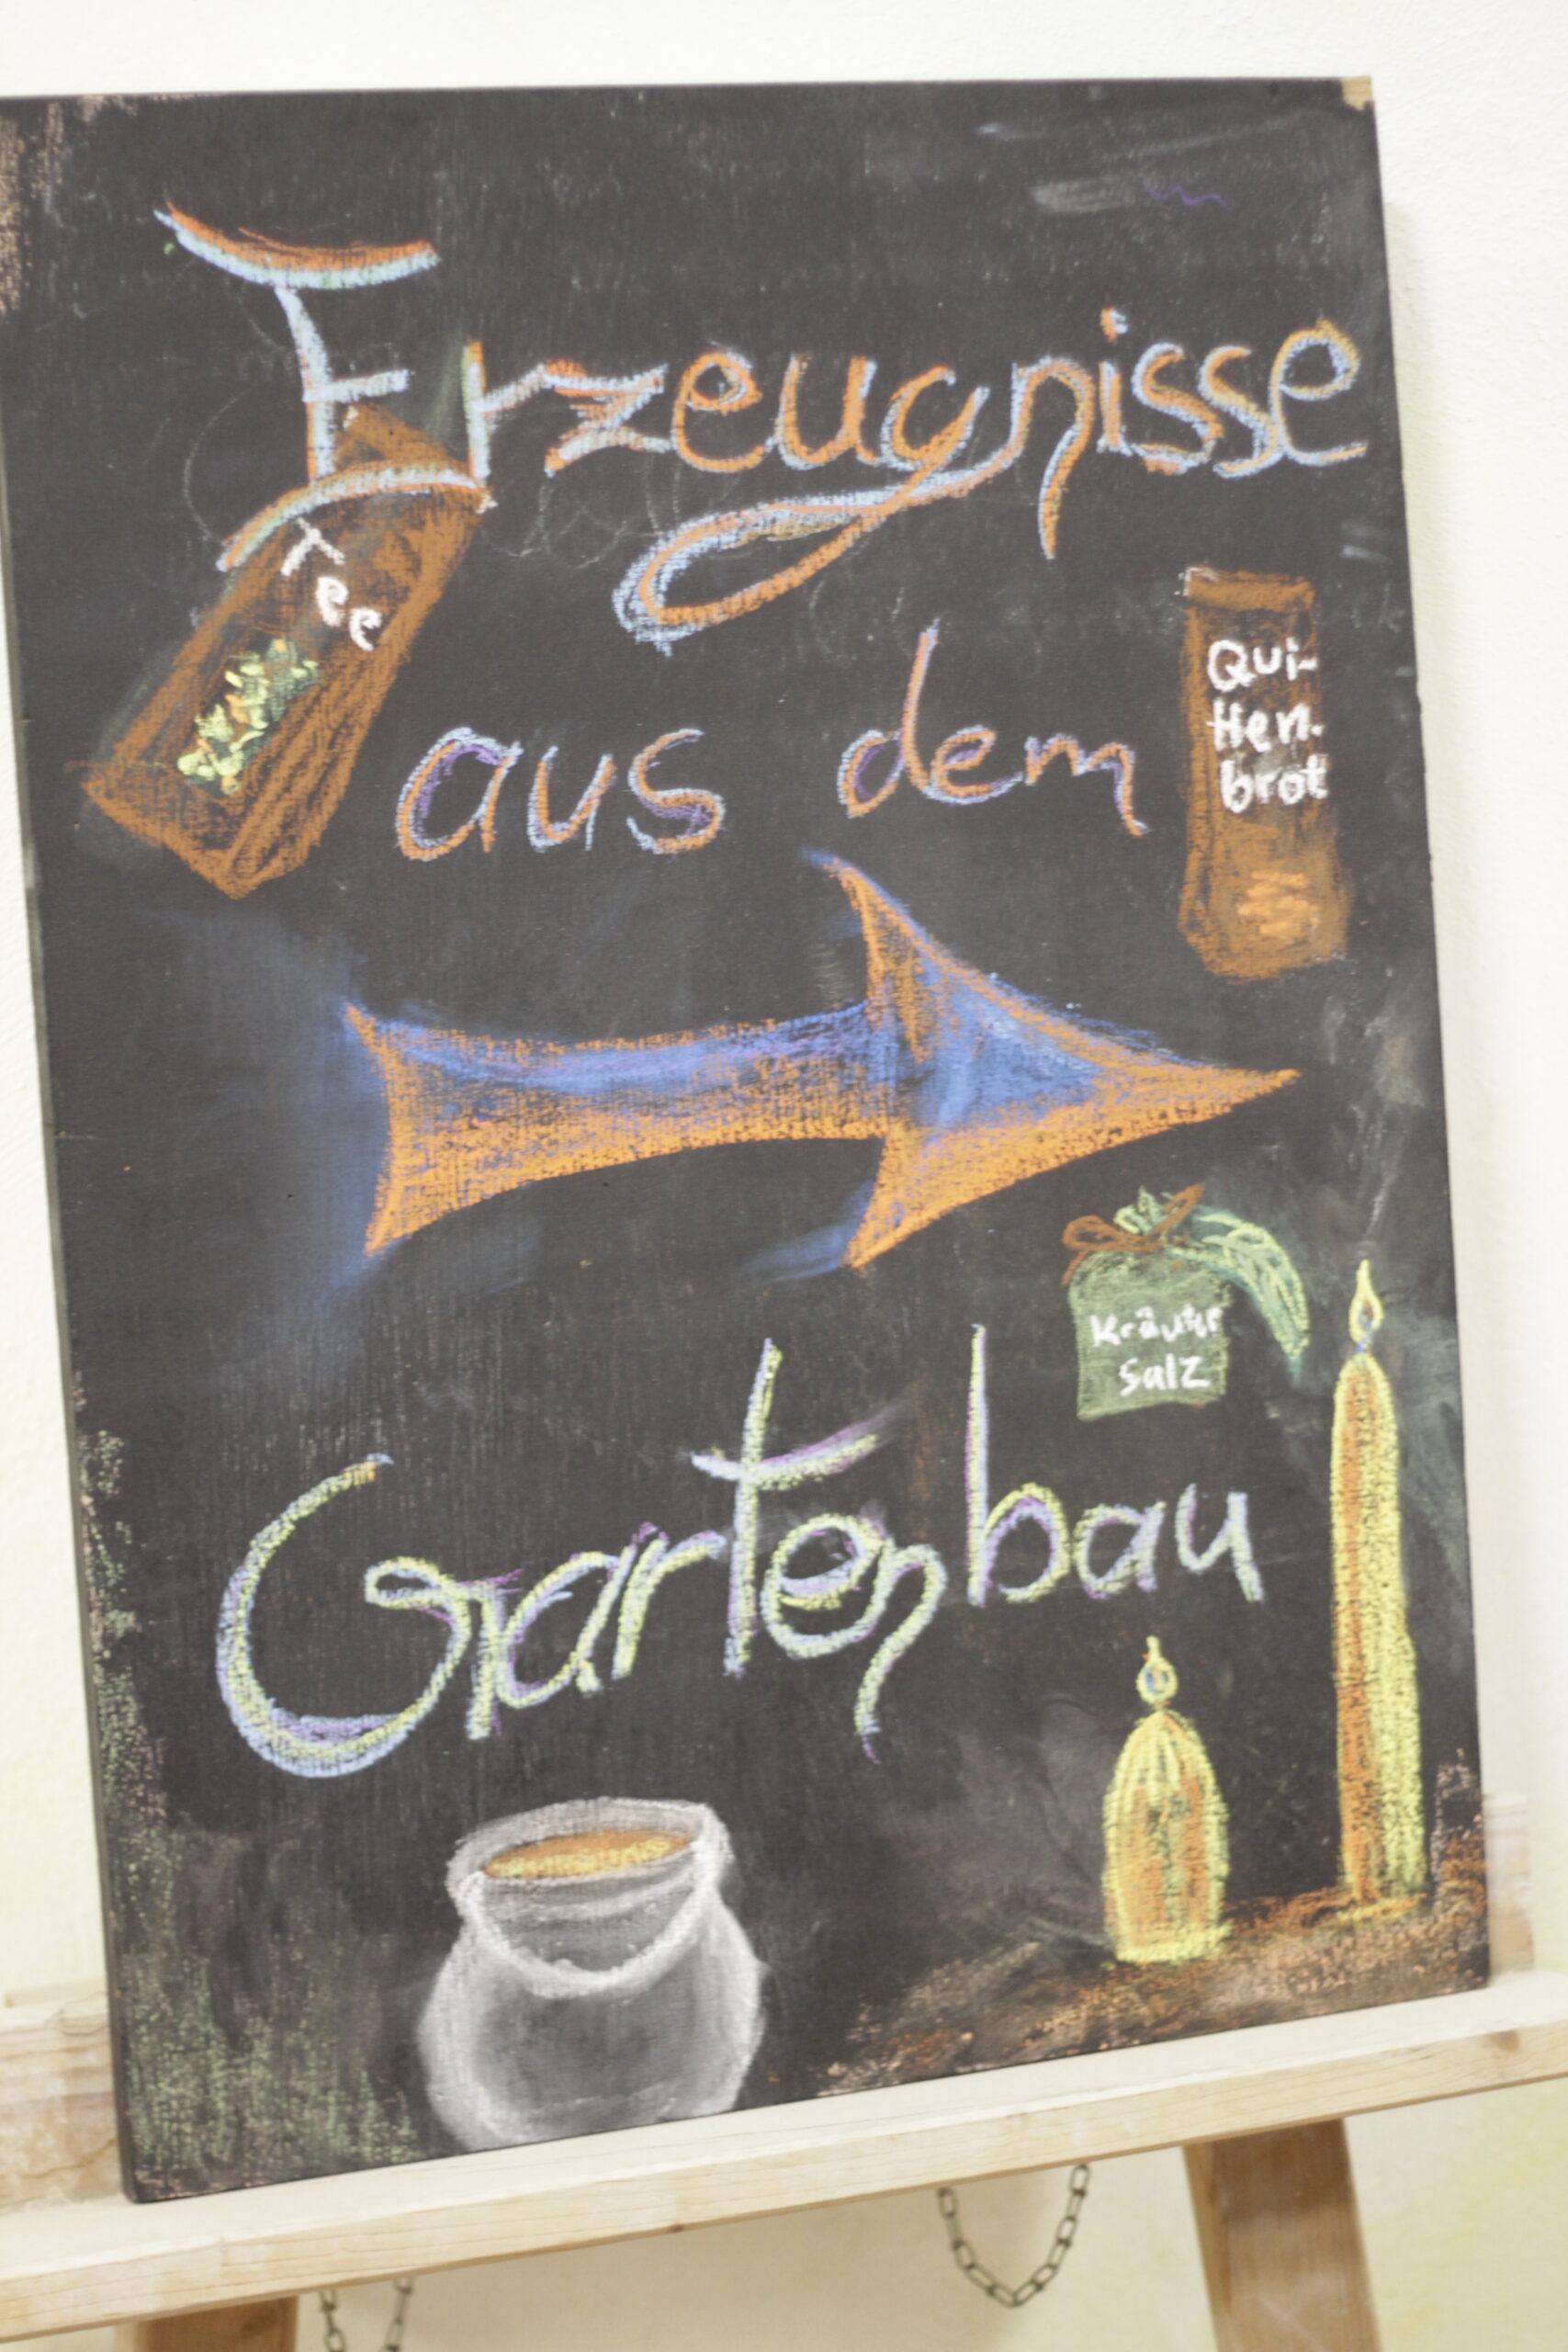 Erzeugnisse
Tee
aus dem
Qui-
tten-
brot
Kräuter
Salz
Gartenbau